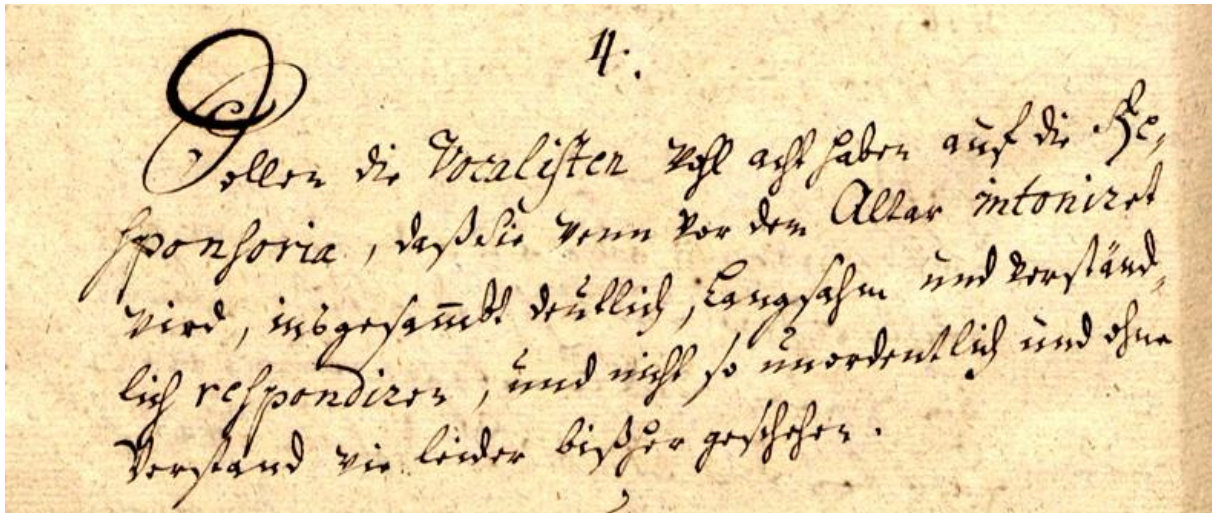 4.
Sollen die Vocalisten wohl acht haben auf die Re-
sponsoria, daß sie wenn vor dem Altar intoniret
wird, insgesammbt deütlich, langsahm und verständ-
lich respondiren, und nicht so unordentlich und ohne
Verstand wie leider bißher geschehen.